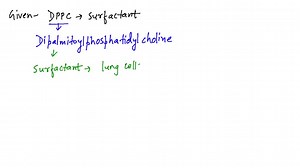 Given- DPPC → surfactant
↓
Dipalmitoylphosphatidyl choline
↓
Surfactant → lung cell-